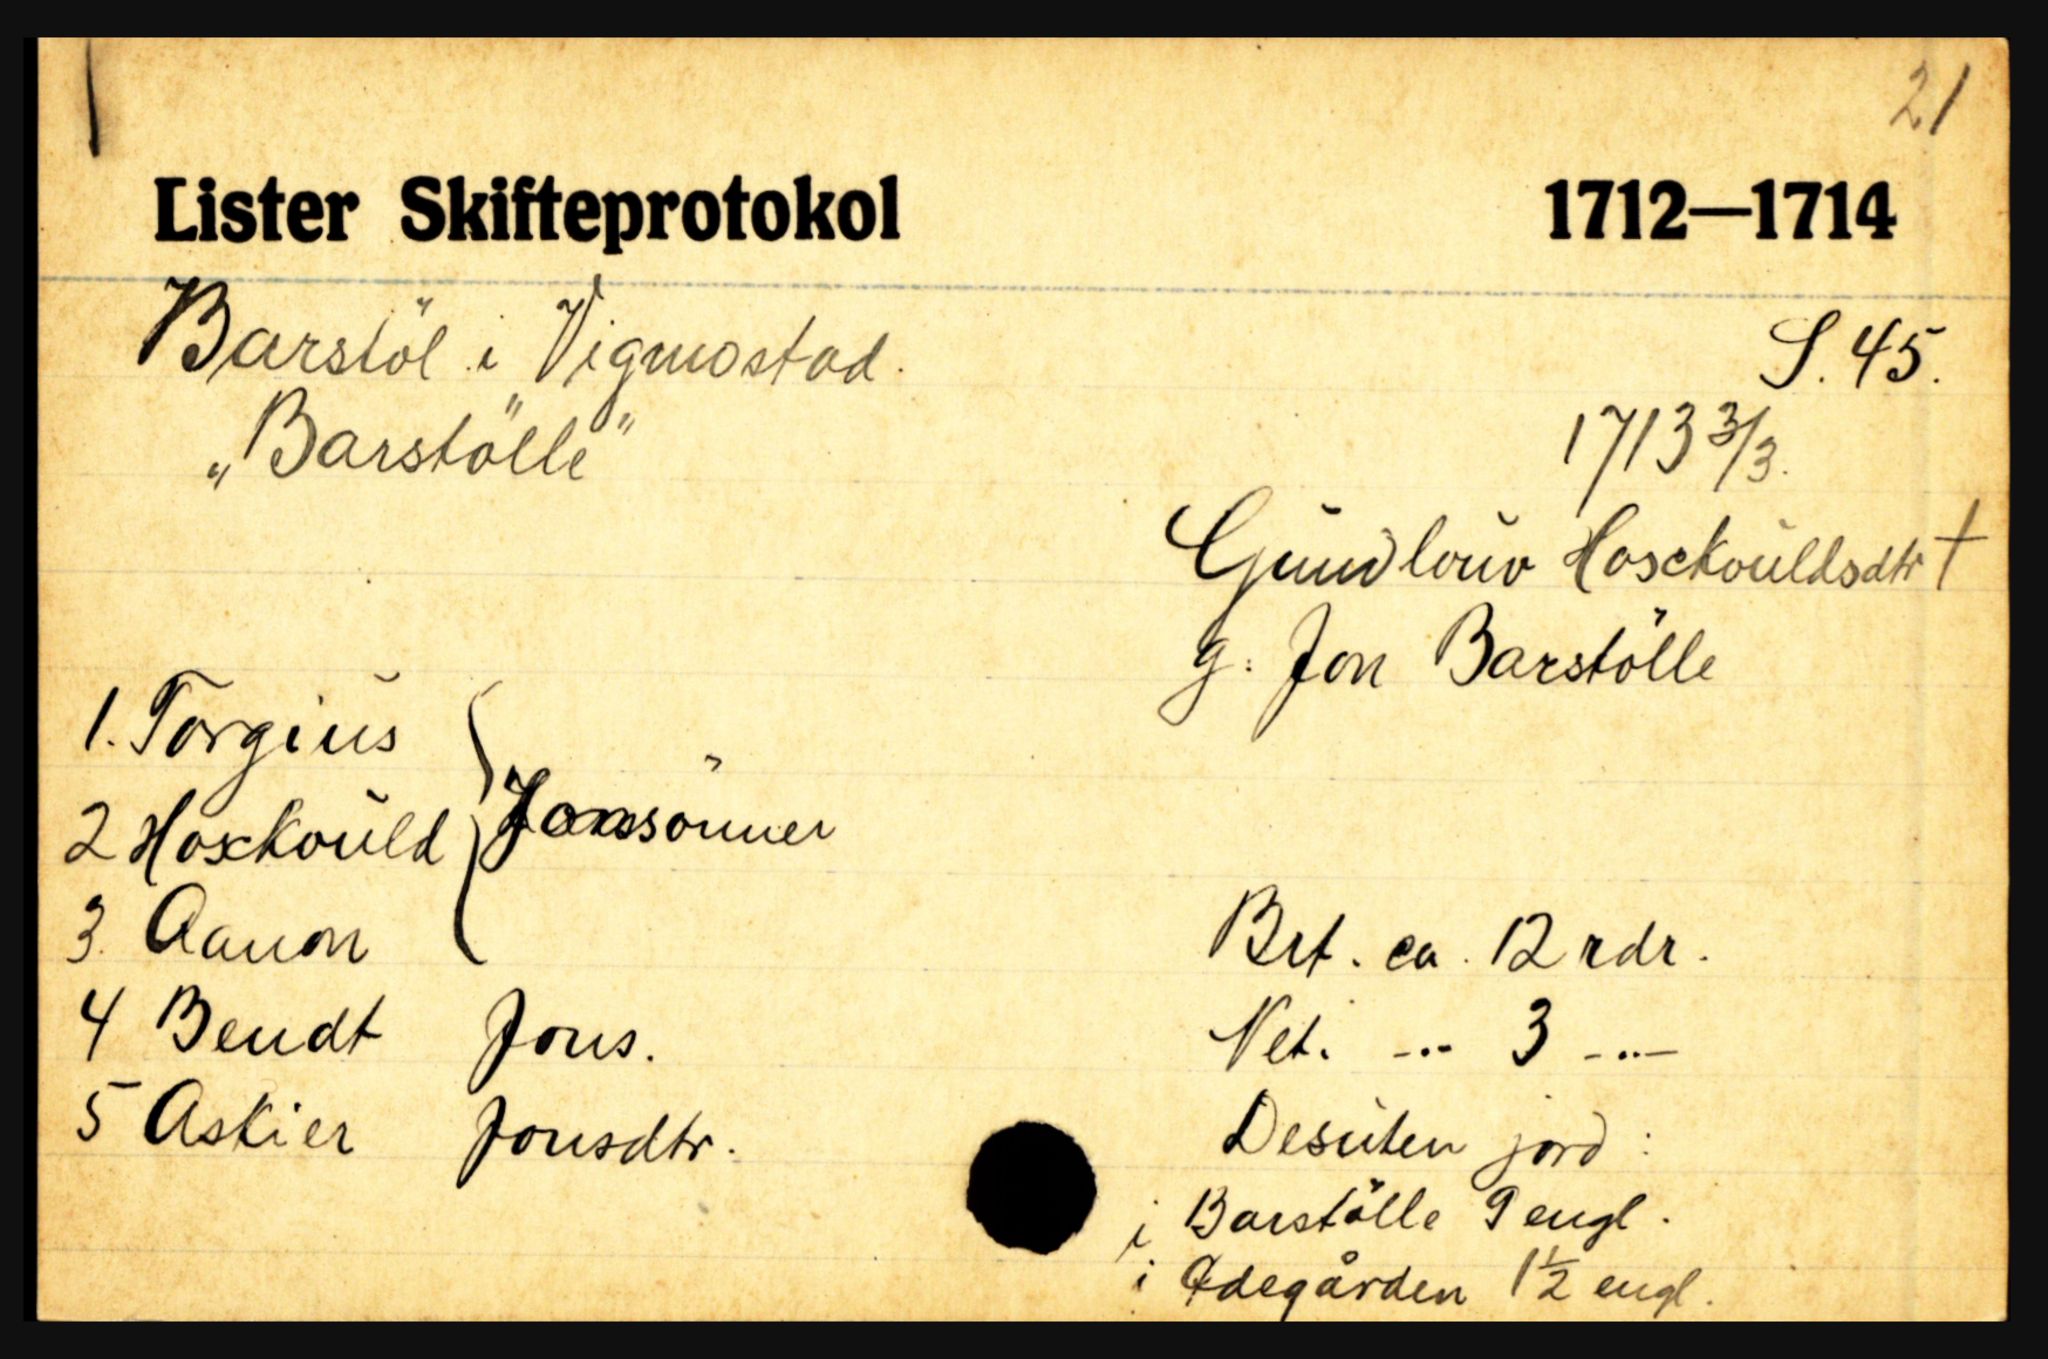 21
Lister Skifteprotokol 1712—1714
Barstöl i Vigmostad.
S. 45.
„Barstölle"
1713 3/3.
Gundlouv Hosckouldsdtr †
g. Jon Barstölle
1. Torgius
2 Hosckould } Jonssönner
3. Aanon
4 Bendt Jons.
5 Askier Jonsdtr.
Brt. ca. 12 rdr.
Net. -..- 3 -..-
Desuten jord:
i Barstölle 9 engl.
i Ødegården 1½ engl.